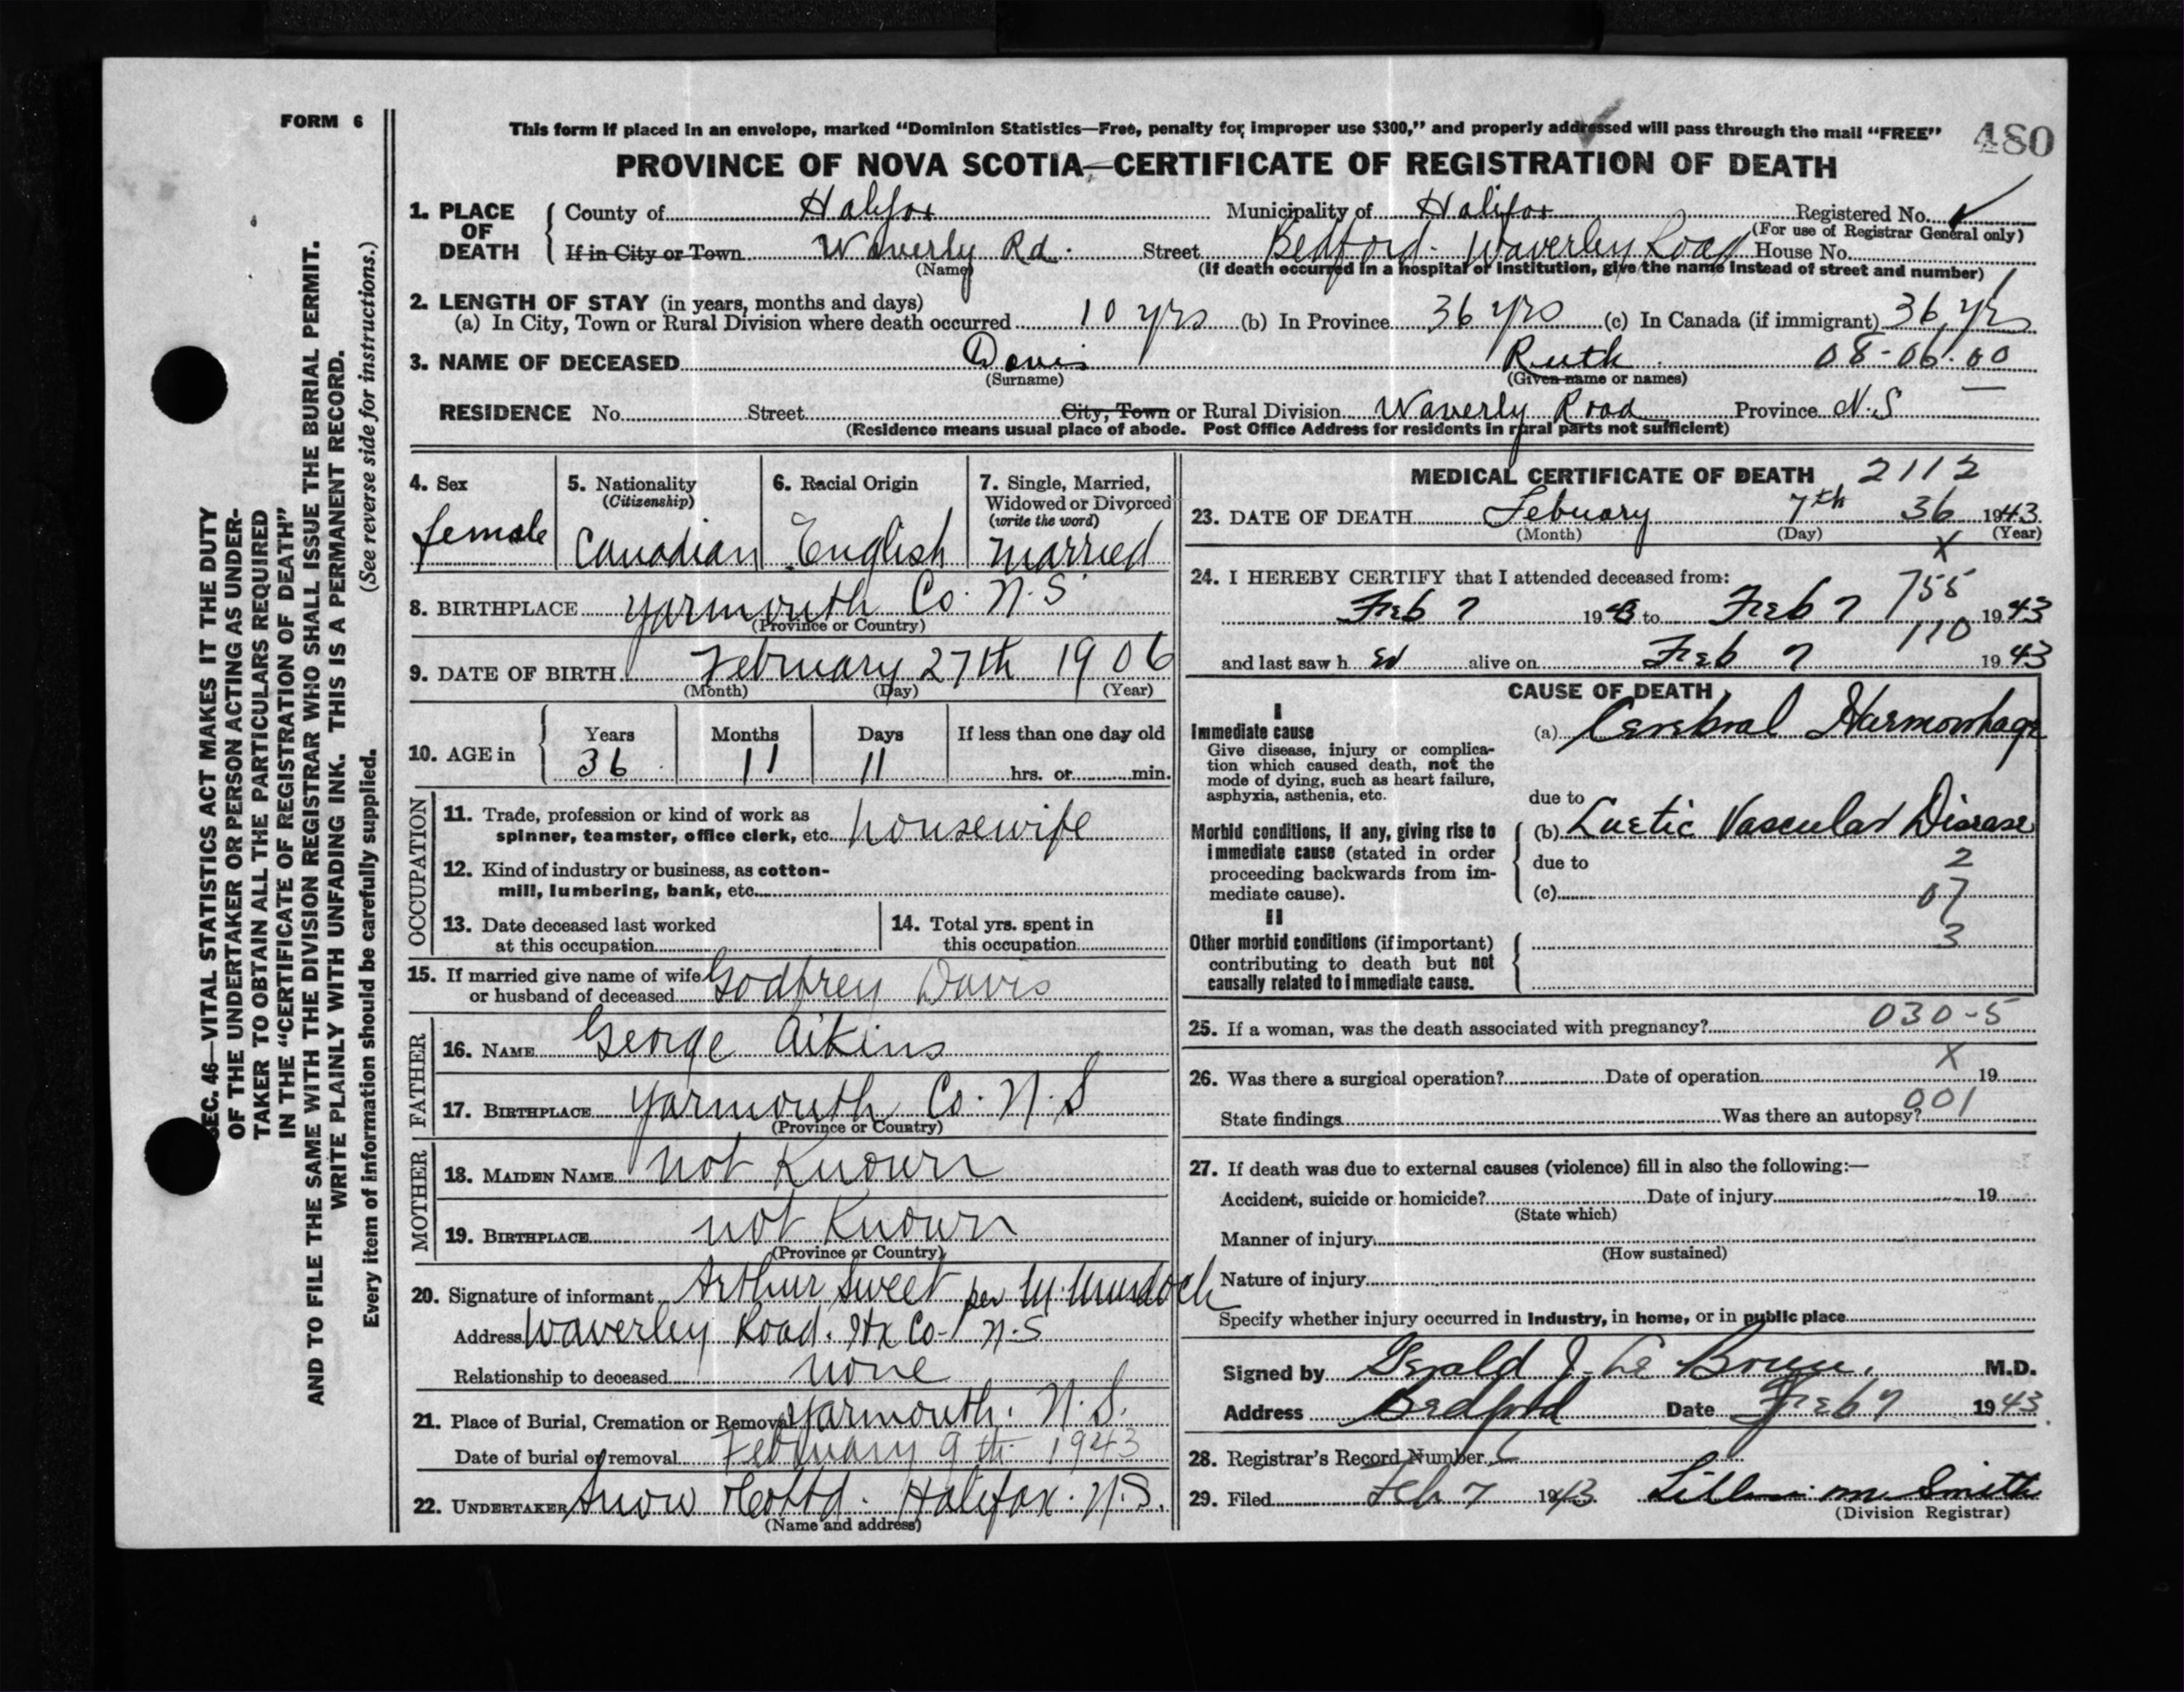 FORM 6
SEC. 46—VITAL STATISTICS ACT MAKES IT THE DUTY
OF THE UNDERTAKER OR PERSON ACTING AS UNDER-
TAKER TO OBTAIN ALL THE PARTICULARS REQUIRED
IN THE "CERTIFICATE OF REGISTRATION OF DEATH"
AND TO FILE THE SAME WITH THE DIVISION REGISTRAR WHO SHALL ISSUE THE BURIAL PERMIT.
WRITE PLAINLY WITH UNFADING INK. THIS IS A PERMANENT RECORD.
Every item of information should be carefully supplied. (See reverse side for instructions.)
This form if placed in an envelope, marked "Dominion Statistics—Free, penalty for improper use $300," and properly addressed will pass through the mail "FREE"
480
PROVINCE OF NOVA SCOTIA—CERTIFICATE OF REGISTRATION OF DEATH
1. PLACE OF DEATH
County of Halifax Municipality of Halifax Registered No.
(For use of Registrar General only)
If in City or Town Waverly Rd. Street Bedford - Waverley Road House No.
(Name) (If death occurred in a hospital or institution, give the name instead of street and number)
2. LENGTH OF STAY (in years, months and days)
(a) In City, Town or Rural Division where death occurred 10 yrs (b) In Province 36 yrs (c) In Canada (if immigrant) 36 yrs
3. NAME OF DECEASED Davis Ruth 08-06-00
(Surname) (Given name or names)
RESIDENCE No. Street City, Town or Rural Division Waverly Road Province N.S
(Residence means usual place of abode. Post Office Address for residents in rural parts not sufficient)
4. Sex
female
5. Nationality
(Citizenship)
Canadian
6. Racial Origin
English
7. Single, Married,
Widowed or Divorced
(write the word)
Married
8. BIRTHPLACE Yarmouth Co. N.S
(Province or Country)
9. DATE OF BIRTH February 27th 1906
(Month) (Day) (Year)
10. AGE in
Years Months Days If less than one day old
36 11 11 hrs. or min.
OCCUPATION
11. Trade, profession or kind of work as
spinner, teamster, office clerk, etc. housewife
12. Kind of industry or business, as cotton-
mill, lumbering, bank, etc.
13. Date deceased last worked
at this occupation
14. Total yrs. spent in
this occupation
15. If married give name of wife
or husband of deceased Godfrey Davis
FATHER
16. NAME George Aikins
17. BIRTHPLACE Yarmouth Co. N.S
(Province or Country)
MOTHER
18. MAIDEN NAME not Known
19. BIRTHPLACE not Known
(Province or Country)
20. Signature of informant Arthur Sweet per M. Murdoch
Address Waverley Road. Hx Co- N.S
Relationship to deceased none
21. Place of Burial, Cremation or Removal Yarmouth. N.S.
Date of burial or removal February 9th 1943
22. UNDERTAKER Snow & Co Ltd. Halifax. N.S.
(Name and address)
MEDICAL CERTIFICATE OF DEATH 2112
23. DATE OF DEATH Febuary 7th 36 1943
(Month) (Day) (Year)
X
24. I HEREBY CERTIFY that I attended deceased from:
755
Feb 7 1943 to Feb 7 1943
110
and last saw h er alive on Feb 7 1943
CAUSE OF DEATH
I
Immediate cause
Give disease, injury or complica-
tion which caused death, not the
mode of dying, such as heart failure,
asphyxia, asthenia, etc.
(a) Cerebral Haemorrhage
due to
Morbid conditions, if any, giving rise to
immediate cause (stated in order
proceeding backwards from im-
mediate cause).
(b) Luetic Vascular Disease
due to 2
(c) 07
II
Other morbid conditions (if important)
contributing to death but not
causally related to immediate cause.
3
25. If a woman, was the death associated with pregnancy? 030-5
X
26. Was there a surgical operation? Date of operation 19
State findings Was there an autopsy? 001
27. If death was due to external causes (violence) fill in also the following:—
Accident, suicide or homicide? Date of injury 19
(State which)
Manner of injury
(How sustained)
Nature of injury
Specify whether injury occurred in Industry, in home, or in public place
Signed by Gerald J. Le Brun, M.D.
Address Bedford Date Feb 7 1943.
28. Registrar's Record Number
29. Filed Feb 7 1943 Lillian M Smith
(Division Registrar)